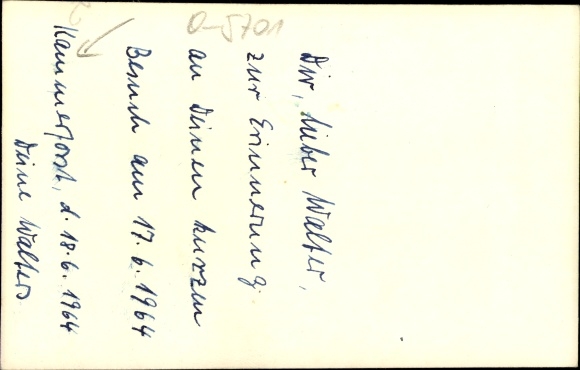 Dir, lieber Walter,
zur Erinnerung
an Deinen kurzen
Besuch am 17.6.1964
Kammerforst, d. 18.6.1964
Deine Walters
0-5701